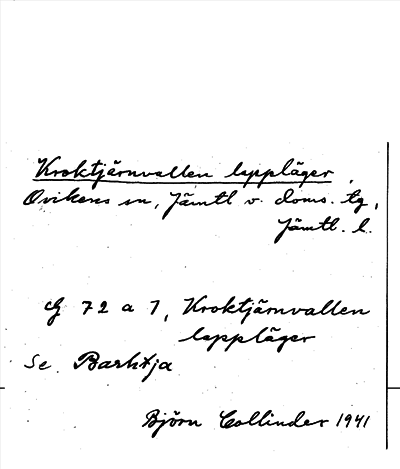 Kroktjärnvallen lappläger.
Ovikens sn, Jämtl v. doms. tg,
Jämtl. l.
G 72 a 7, Kroktjärnvallen
lappläger
Se Barhtja
Björn Collinder 1941